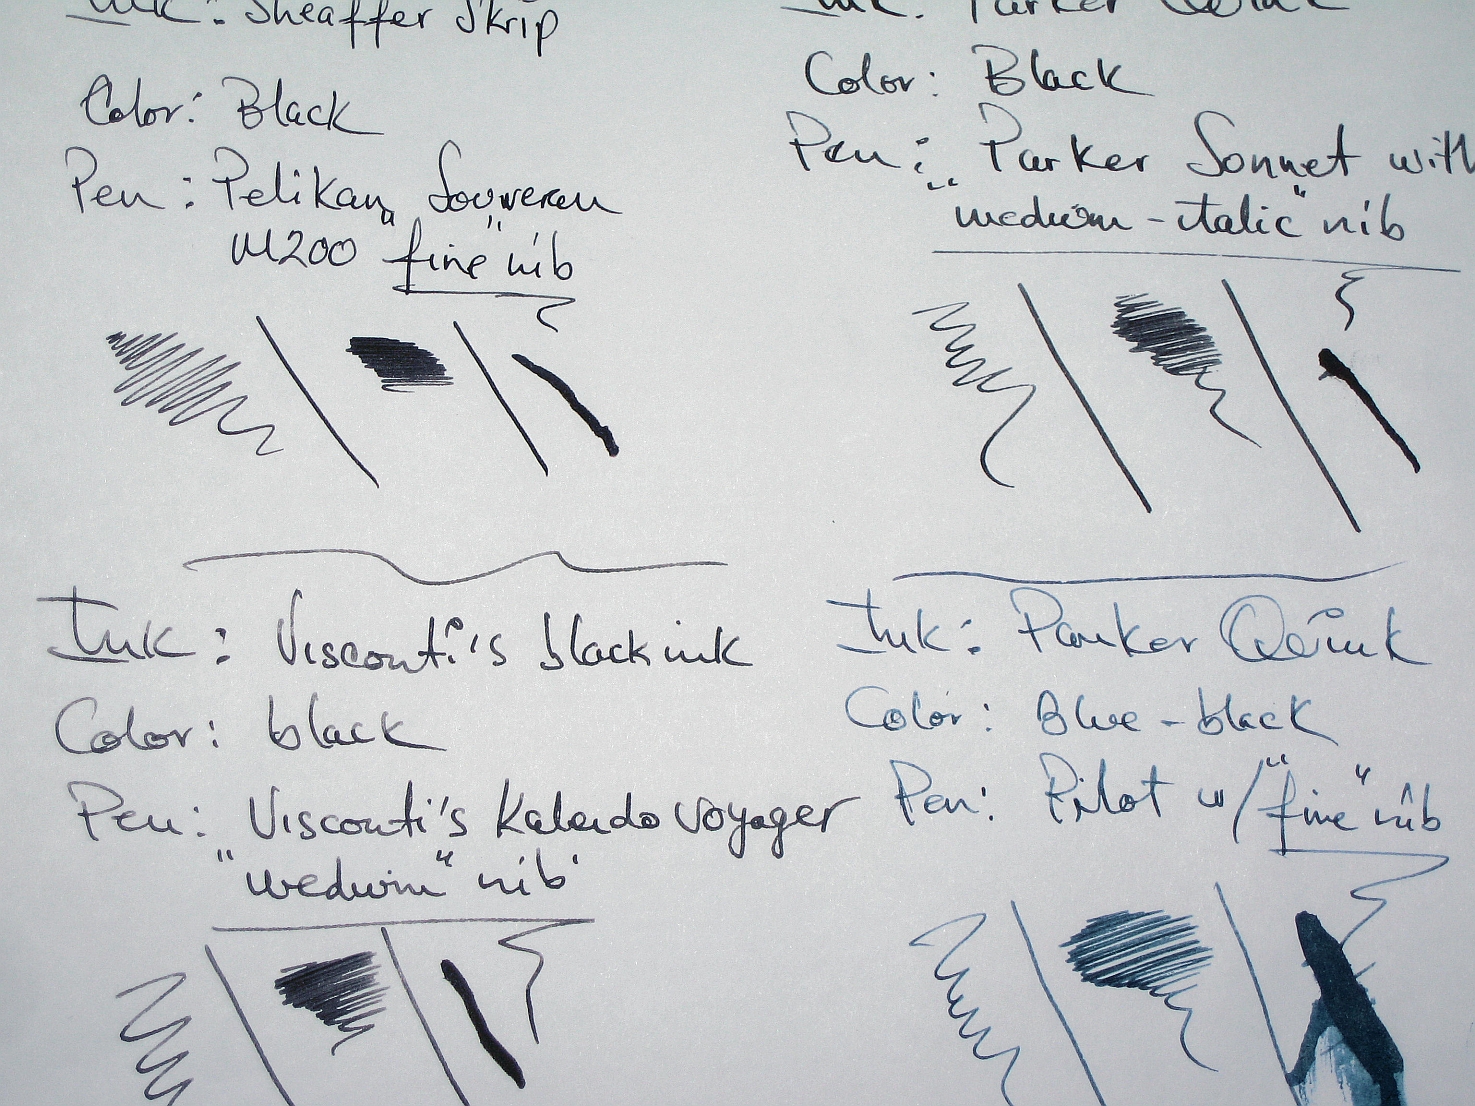 Ink: Sheaffer Skrip
Color: Black
Pen: Pelikan Souveran
M200 "fine" nib
Ink: Parker Quink
Color: Black
Pen: Parker Sonnet with
"medium-italic" nib
Ink: Visconti's black ink
Color: black
Pen: Visconti's Kaleido voyager
"medium" nib
Ink: Parker Quink
Color: Blue-black
Pen: Pilot w/ "fine" nib